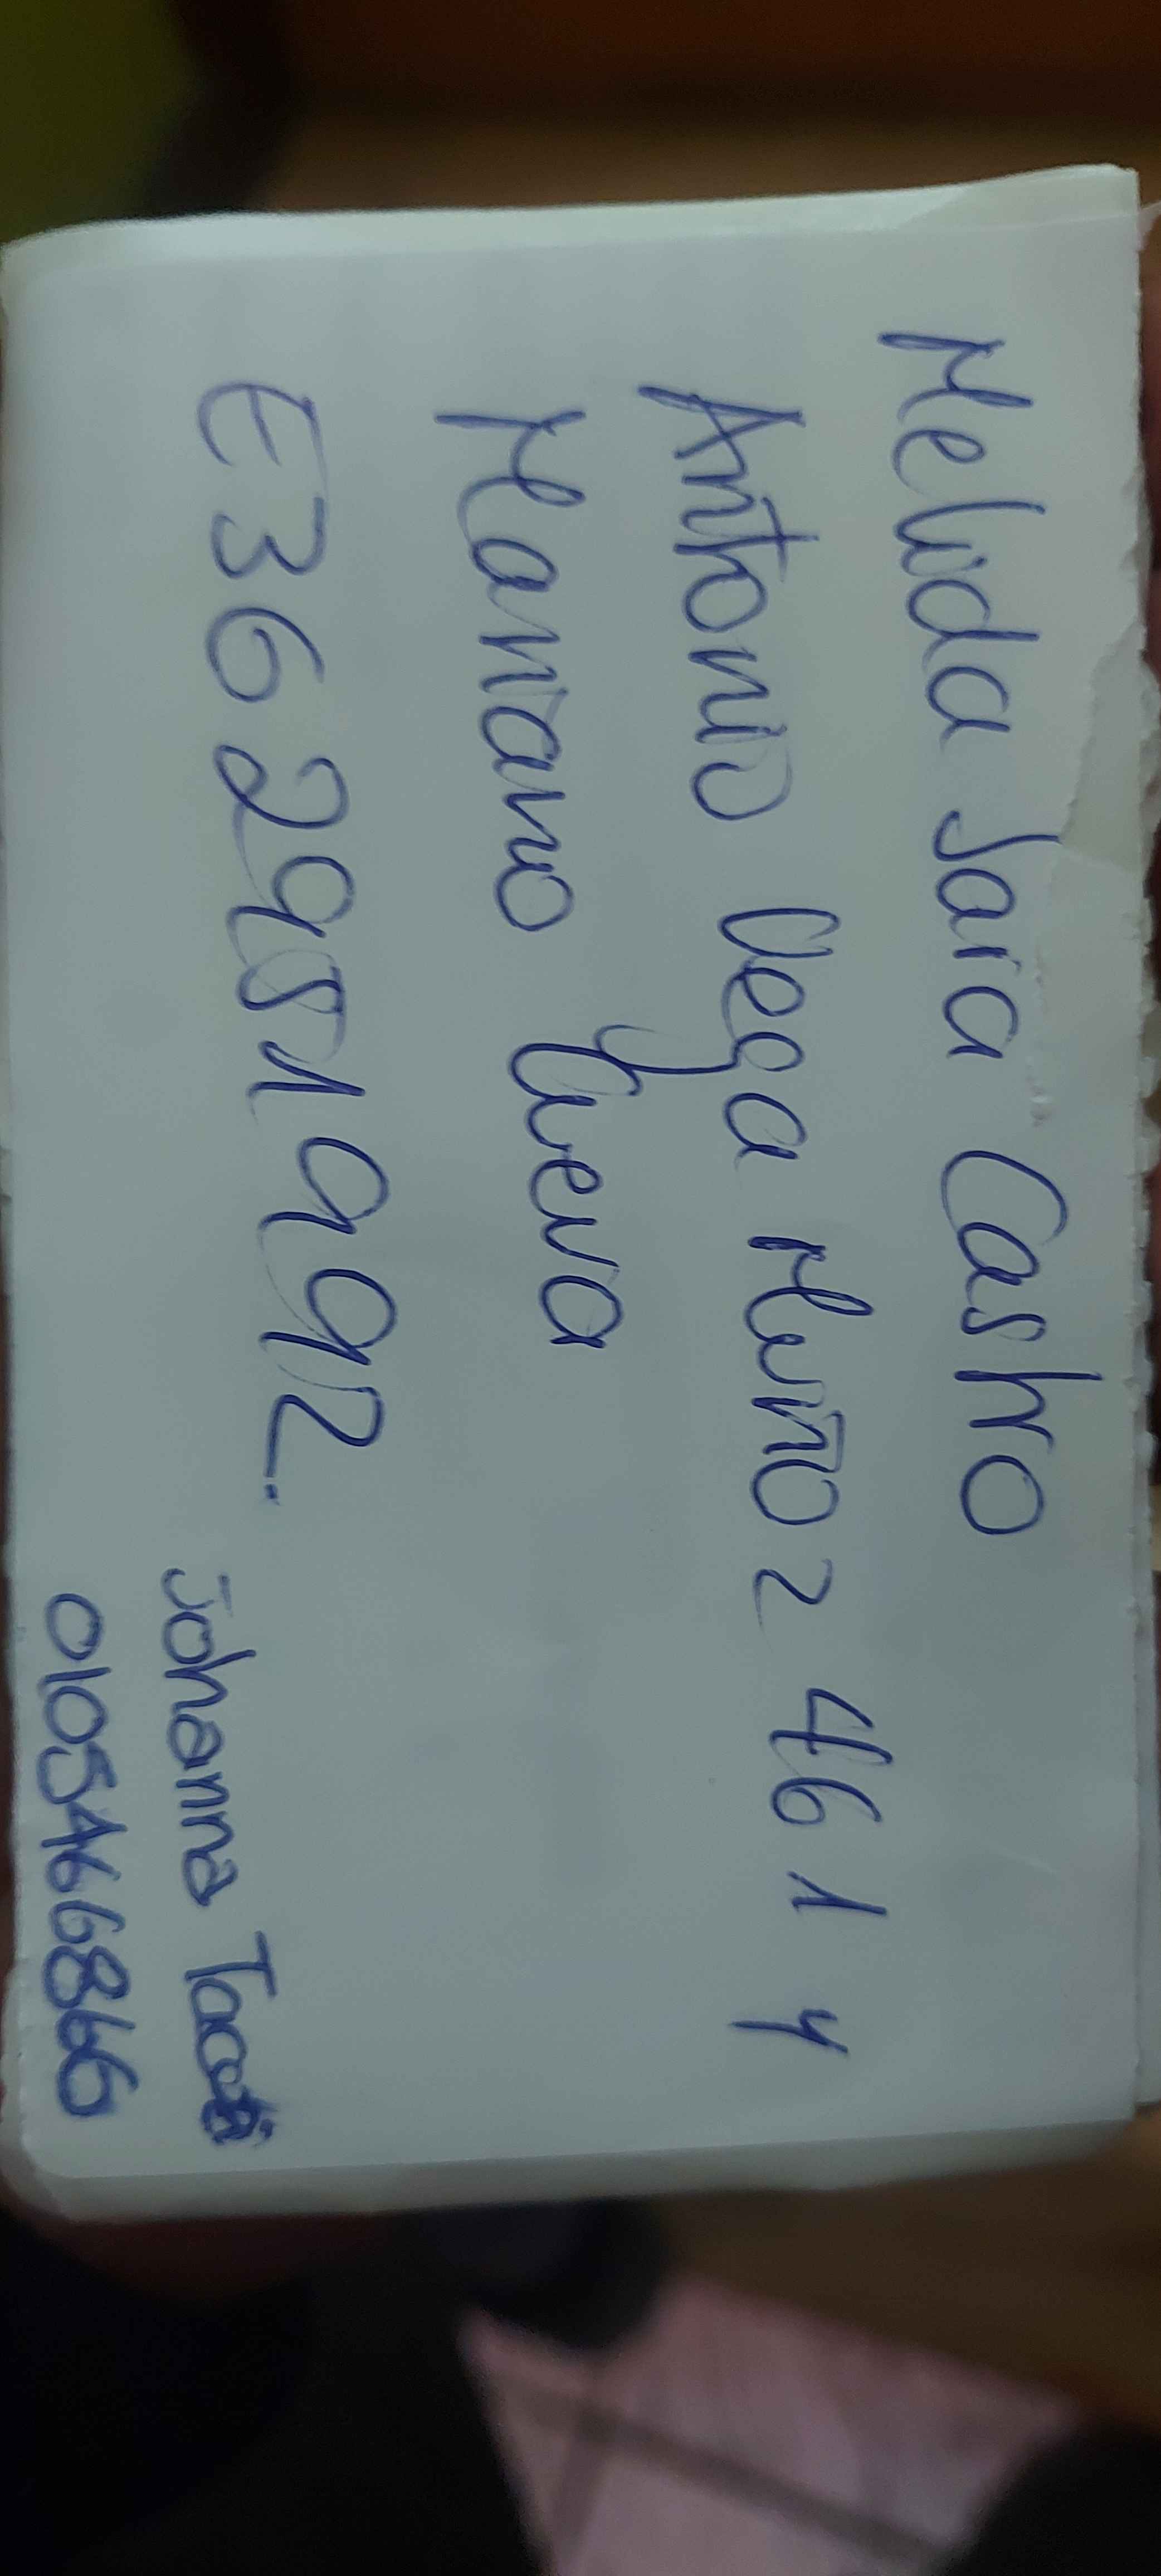 Melida Jara Castro
Antonio Vega Muñoz 461 y
Mariano Cueva
E362951992.
Johanna
0105466866